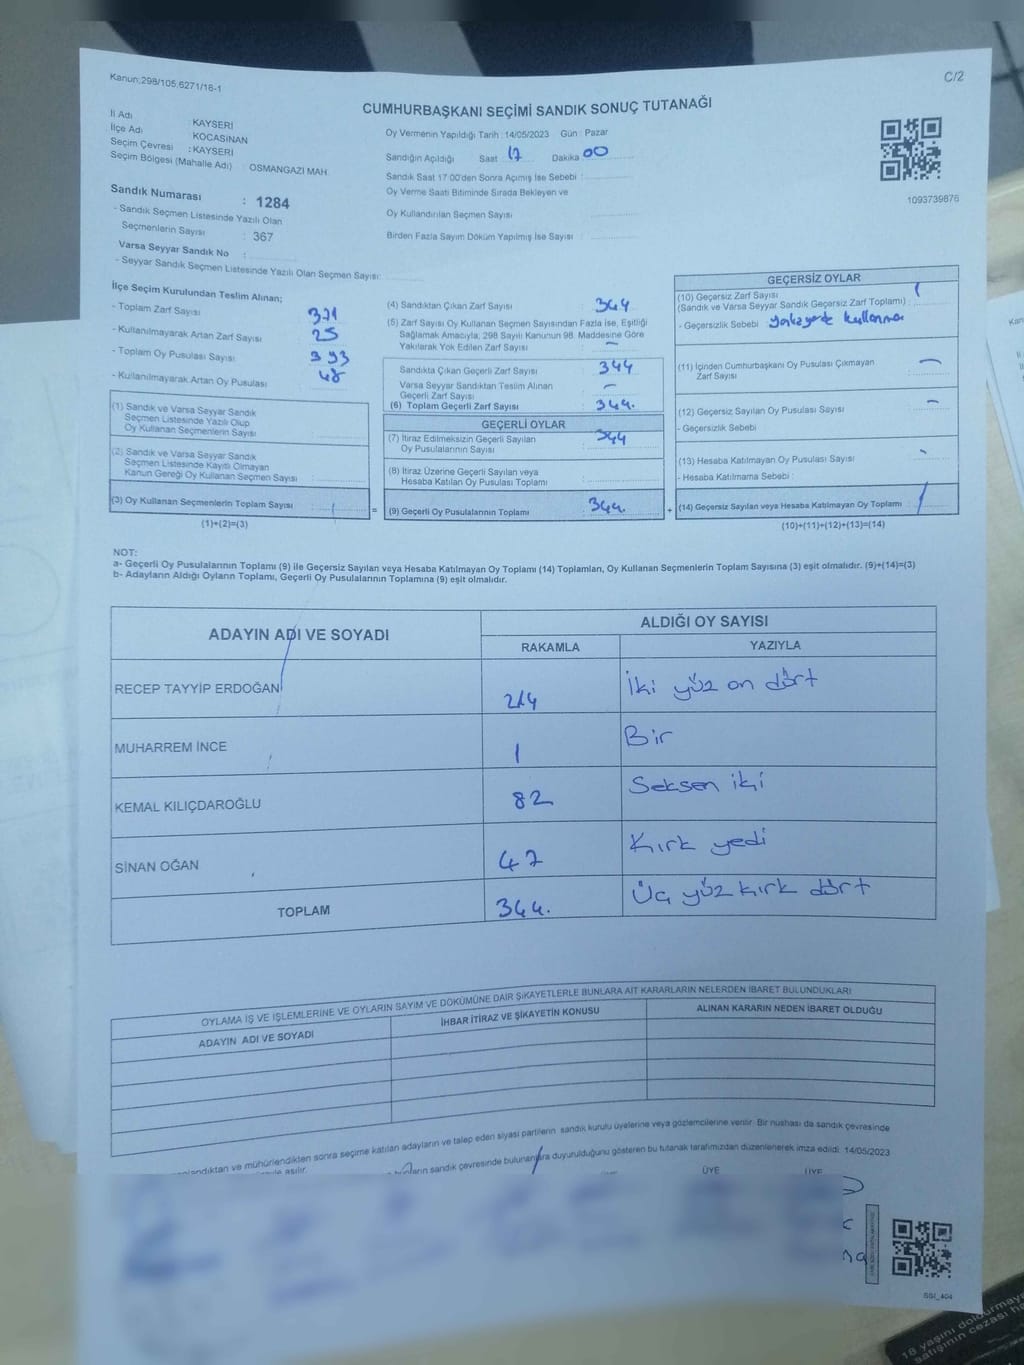 Kanun;298/105,6271/18-1
C/2
CUMHURBAŞKANI SEÇİMİ SANDIK SONUÇ TUTANAĞI
İl Adı : KAYSERİ
İlçe Adı KOCASİNAN
Seçim Çevresi : KAYSERİ
Seçim Bölgesi (Mahalle Adı) : OSMANGAZİ MAH.
Sandık Numarası : 1284
- Sandık Seçmen Listesinde Yazılı Olan
Seçmenlerin Sayısı : 367
Varsa Seyyar Sandık No :
- Seyyar Sandık Seçmen Listesinde Yazılı Olan Seçmen Sayısı:
Oy Vermenin Yapıldığı Tarih :14/05/2023 Gün : Pazar
Sandığın Açıldığı Saat 17 Dakika 00
Sandık Saat 17:00'den Sonra Açımış İse Sebebi :
Oy Verme Saati Bitiminde Sırada Bekleyen ve
Oy Kullandırılan Seçmen Sayısı
Birden Fazla Sayım Döküm Yapılmış İse Sayısı :
1093739876
İlçe Seçim Kurulundan Teslim Alınan;
- Toplam Zarf Sayısı 371
- Kullanılmayarak Artan Zarf Sayısı 25
- Toplam Oy Pusulası Sayısı 393
- Kullanılmayarak Artan Oy Pusulası 48
(1) Sandık ve Varsa Seyyar Sandık
Seçmen Listesinde Yazılı Olup
Oy Kullanan Seçmenlerin Sayısı
(2) Sandık ve Varsa Seyyar Sandık
Seçmen Listesinde Kayıtlı Olmayan
Kanun Gereği Oy Kullanan Seçmen Sayısı :
(3) Oy Kullanan Seçmenlerin Toplam Sayısı =
(1)+(2)=(3)
(4) Sandıktan Çıkan Zarf Sayısı 344
(5) Zarf Sayısı Oy Kullanan Seçmen Sayısından Fazla İse, Eşitliği
Sağlamak Amacıyla, 298 Sayılı Kanunun 98. Maddesine Göre
Yakılarak Yok Edilen Zarf Sayısı –
Sandıkta Çıkan Geçerli Zarf Sayısı 344
Varsa Seyyar Sandıktan Teslim Alınan
Geçerli Zarf Sayısı –
(6) Toplam Geçerli Zarf Sayısı 344.
GEÇERLİ OYLAR
(7) İtiraz Edilmeksizin Geçerli Sayılan 344
Oy Pusulalarının Sayısı
(8) İtiraz Üzerine Geçerli Sayılan veya
Hesaba Katılan Oy Pusulası Toplamı
(9) Geçerli Oy Pusulalarının Toplamı 344. +
GEÇERSİZ OYLAR
(10) Geçersiz Zarf Sayısı 1
(Sandık ve Varsa Seyyar Sandık Geçersiz Zarf Toplamı) :
- Geçersizlik Sebebi
(11) İçinden Cumhurbaşkanı Oy Pusulası Çıkmayan –
Zarf Sayısı
(12) Geçersiz Sayılan Oy Pusulası Sayısı –
- Geçersizlik Sebebi
(13) Hesaba Katılmayan Oy Pusulası Sayısı -
- Hesaba Katılmama Sebebi :
(14) Geçersiz Sayılan veya Hesaba Katılmayan Oy Toplamı : 1
(10)+(11)+(12)+(13)=(14)
NOT:
a- Geçerli Oy Pusulalarının Toplamı (9) ile Geçersiz Sayılan veya Hesaba Katılmayan Oy Toplamı (14) Toplamları, Oy Kullanan Seçmenlerin Toplam Sayısına (3) eşit olmalıdır. (9)+(14)=(3)
b- Adayların Aldığı Oyların Toplamı, Geçerli Oy Pusulalarının Toplamına (9) eşit olmalıdır.
ADAYIN ADI VE SOYADI
ALDIĞI OY SAYISI
RAKAMLA YAZIYLA
RECEP TAYYİP ERDOĞAN 214 İki yüz on dört
MUHARREM İNCE 1 Bir
KEMAL KILIÇDAROĞLU 82 Seksen iki
SİNAN OĞAN 47 Kırk yedi
TOPLAM 344. Üç yüz kırk dört
OYLAMA İŞ VE İŞLEMLERİNE VE OYLARIN SAYIM VE DÖKÜMÜNE DAİR ŞİKAYETLERLE BUNLARA AİT KARARLARIN NELERDEN İBARET BULUNDUKLARI
ADAYIN ADI VE SOYADI İHBAR İTİRAZ VE ŞİKAYETİN KONUSU ALINAN KARARIN NEDEN İBARET OLDUĞU
andıktan ve mühürlendikten sonra seçime katılan adayların ve talep eden siyasi partilerin sandık kurulu üyelerine veya gözlemcilerine verilir. Bir nüshası da sandık çevresinde
asılır. sandık çevresinde bulunanlara duyurulduğunu gösteren bu tutanak tarafımızdan düzenlenerek imza edildi. 14/05/2023
ÜYE ÜYE
SSİ_404
18 yaşını doldurmay
satışının cezası ha